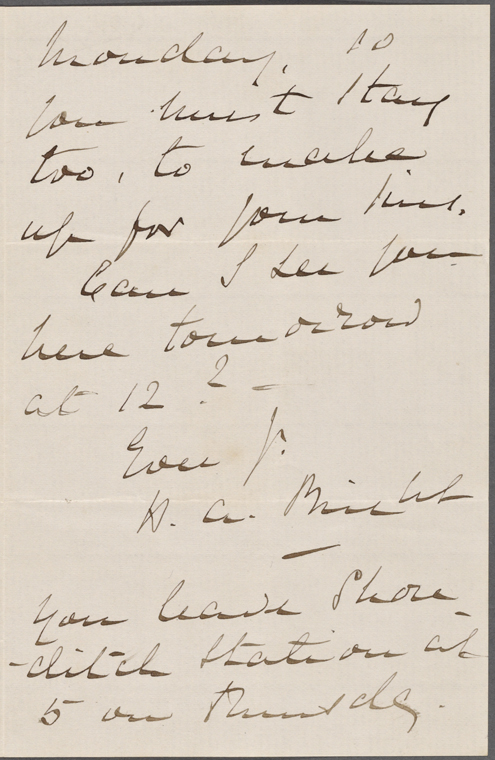 Monday, so
you must stay
too, to make
up for your sins.
Can I see you
here tomorrow
at 12 ? –
Ever yr.
H. A. Bright
You leave Shore
-ditch Station at
5 on Thursday.